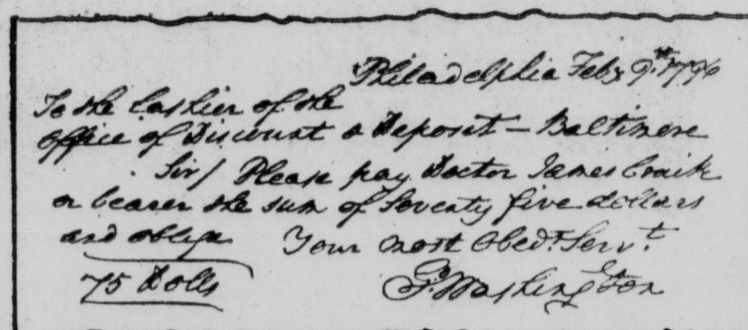 Philadelphia Feby 9th 1796
To the Cashier of the
Office of Discount & Deposit - Baltimore
Sir/ Please pay Doctor James Craik
or bearer the sum of Seventy five dollars
and oblige Your most Obedt Servt
75 Dolls G. Washington